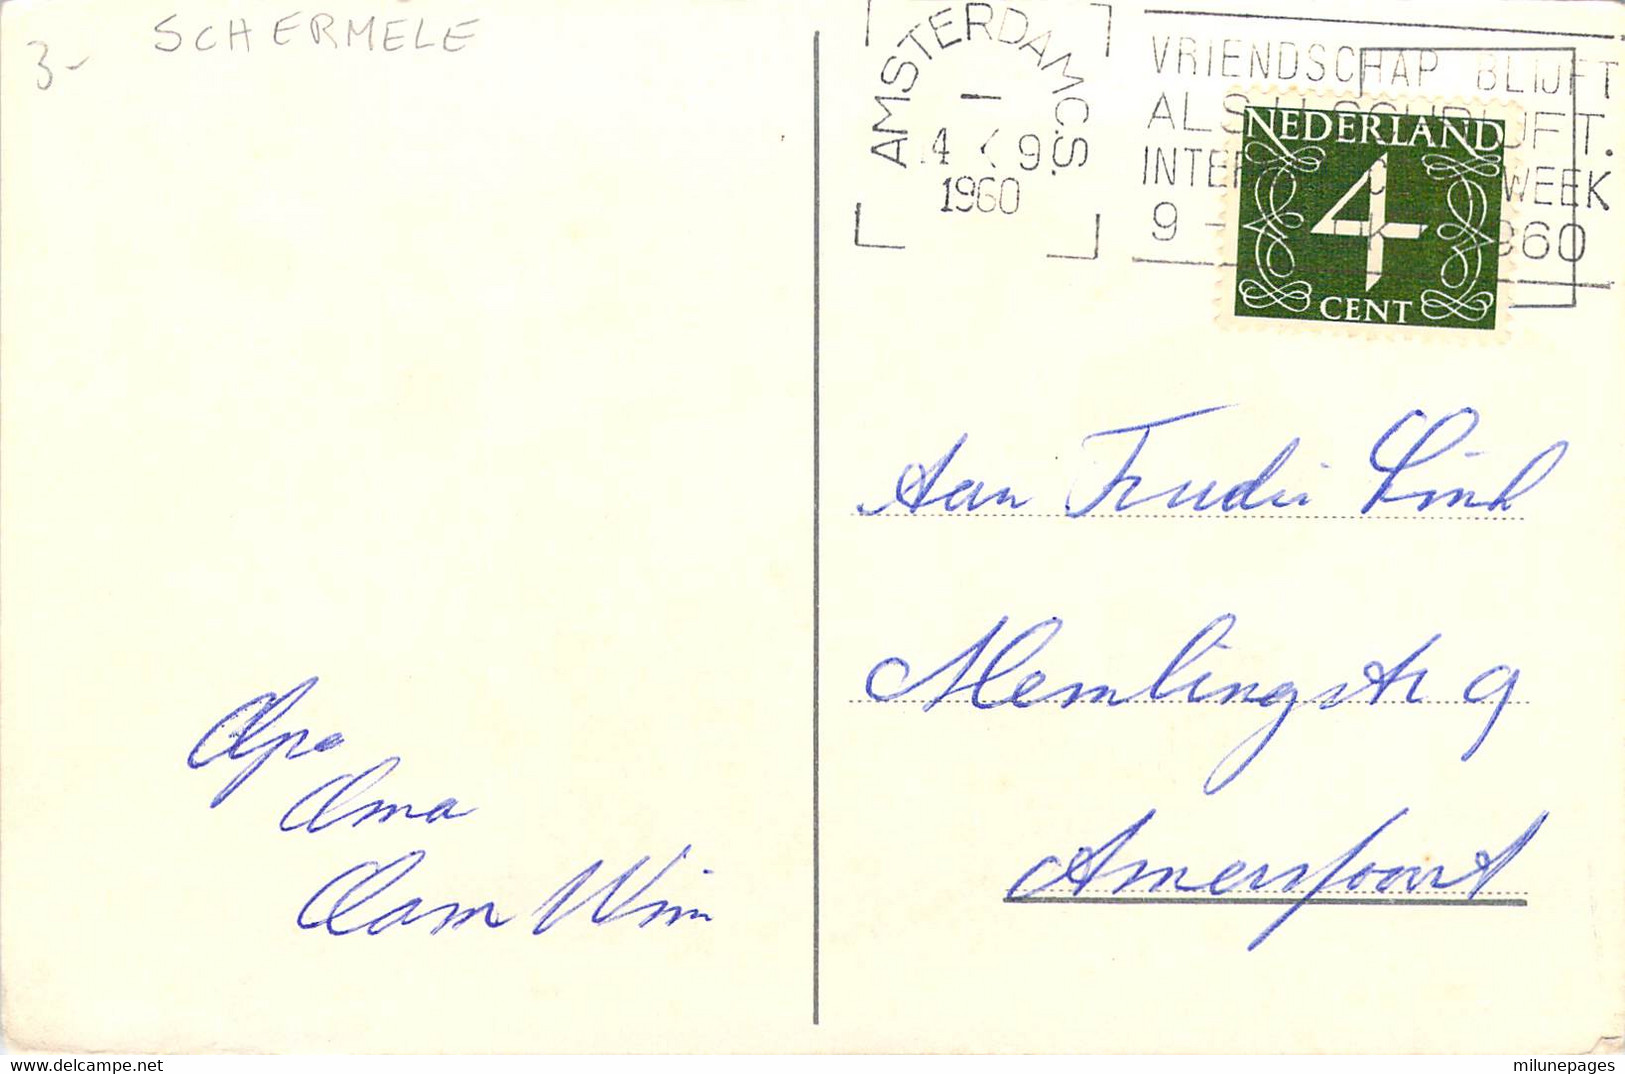 3- SCHERMELE
AMSTERDAM C.S.
1960
VRIENDSCHAP BLIJFT
ALS U SCHRIJFT.
WEEK
9 - 1960
NEDERLAND
4
CENT
Aan Trudi
Memlingstr 9
Amersfoort
Opa
Oma
Oom Wim
milunepages